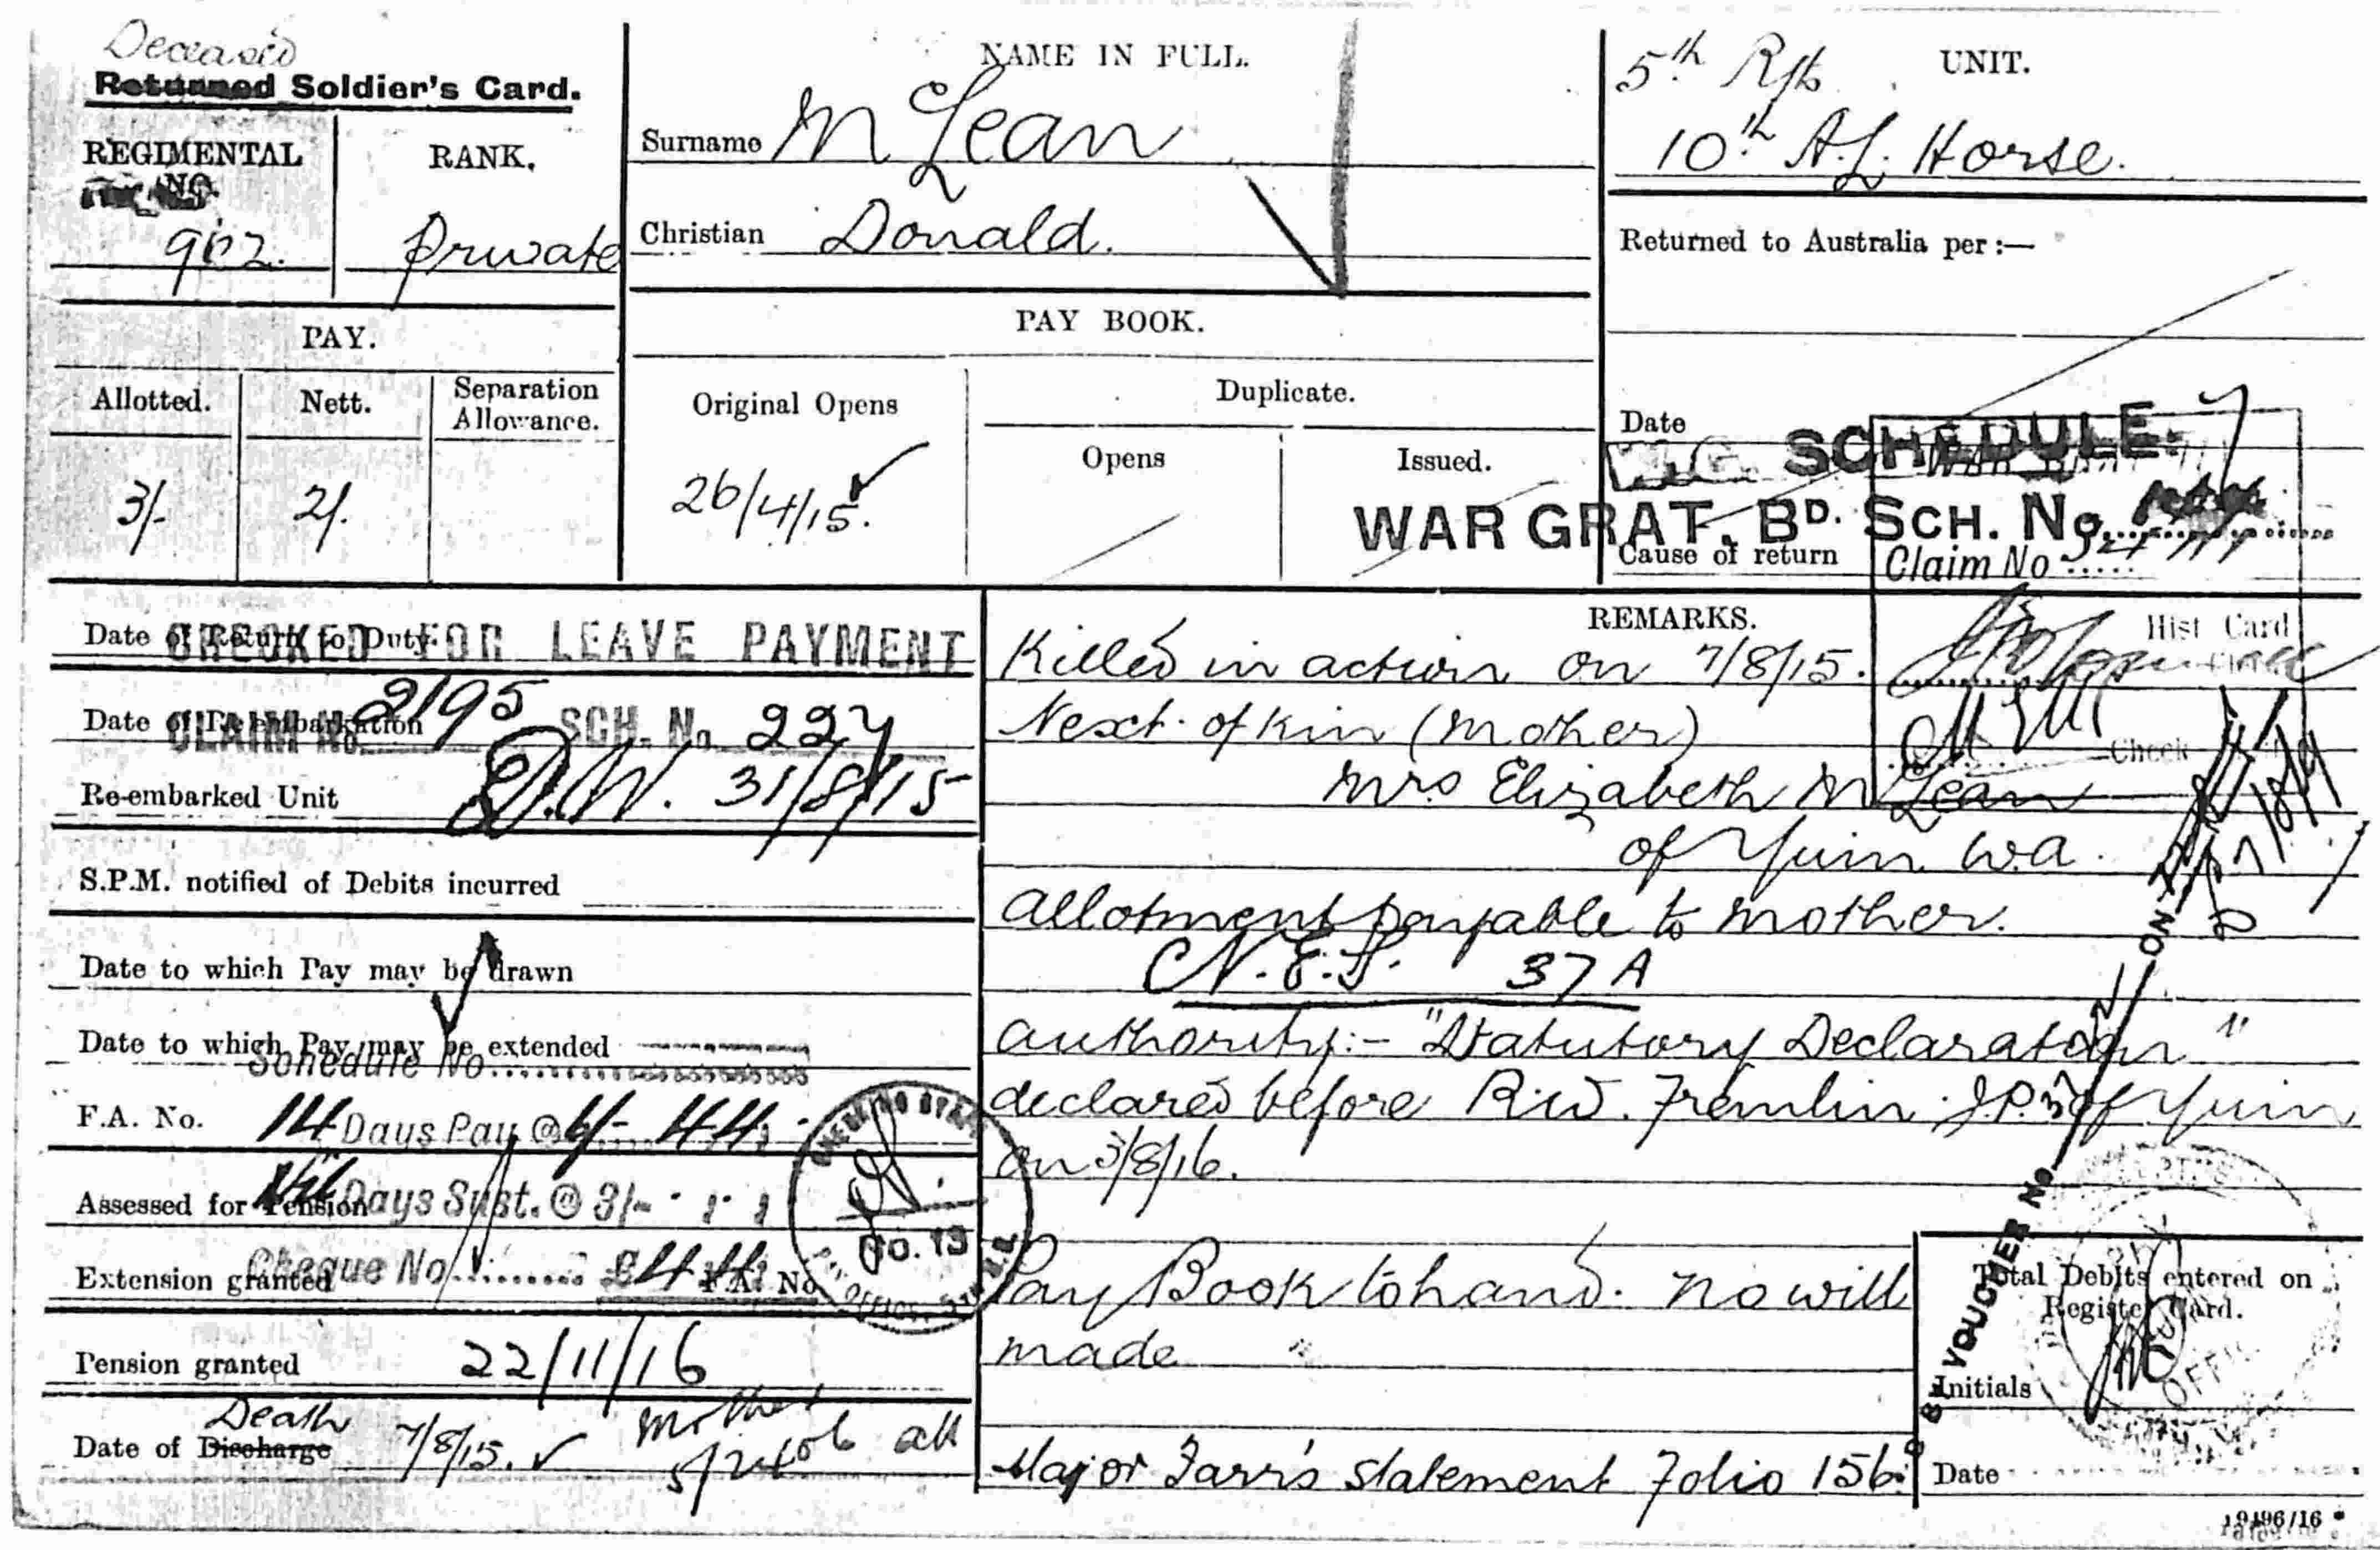 Deceased
Returned Soldier's Card.
REGIMENTAL
NO.
RANK.
Private
NAME IN FULL.
Surname McLean
Christian Donald.
5th Rfts UNIT.
10th A.L. Horse.
Returned to Australia per :—
PAY.
Allotted. Nett. Separation Allowance.
3/- 2/.
PAY BOOK.
Original Opens
26/4/15.
Duplicate.
Opens Issued.
Date
W.G. SCHEDULE.
WAR GRAT. BD. SCH. No.
Cause of return
Claim No
Date of Return to Duty
CHECKED FOR LEAVE PAYMENT
Date of Re-embarkation
CLAIM No. 2195 SCH. No. 227
Re-embarked Unit
D.W. 31/8/15
S.P.M. notified of Debits incurred
Date to which Pay may be drawn
Date to which Pay may be extended
Schedule No
F.A. No.
14 Days Pay @ 6/- 4 4
Assessed for Pension
Nil Days Sust. @ 3/-
Extension granted
Cheque No £4 4
F.A. No
NO. 13
PAY OFFICE
Pension granted
22/11/16
Death
Date of Discharge 7/8/15.
Mother
all
REMARKS.
Hist Card
Killed in action on 7/8/15.
Next of kin (mother)
Check
Mrs Elizabeth McLean
of Yuin W.A.
Allotment payable to mother.
N.E.S. 37A
Authority:- "Statutory Declaration"
declared before R.W. Fremlin J.P. of Yuin
on 3/8/16.
Pay Book to hand. No will
made
Major Farr's statement Folio 156.
VOUCHER No ON
Total Debits entered on
Register Card.
Initials
Date
19496/16